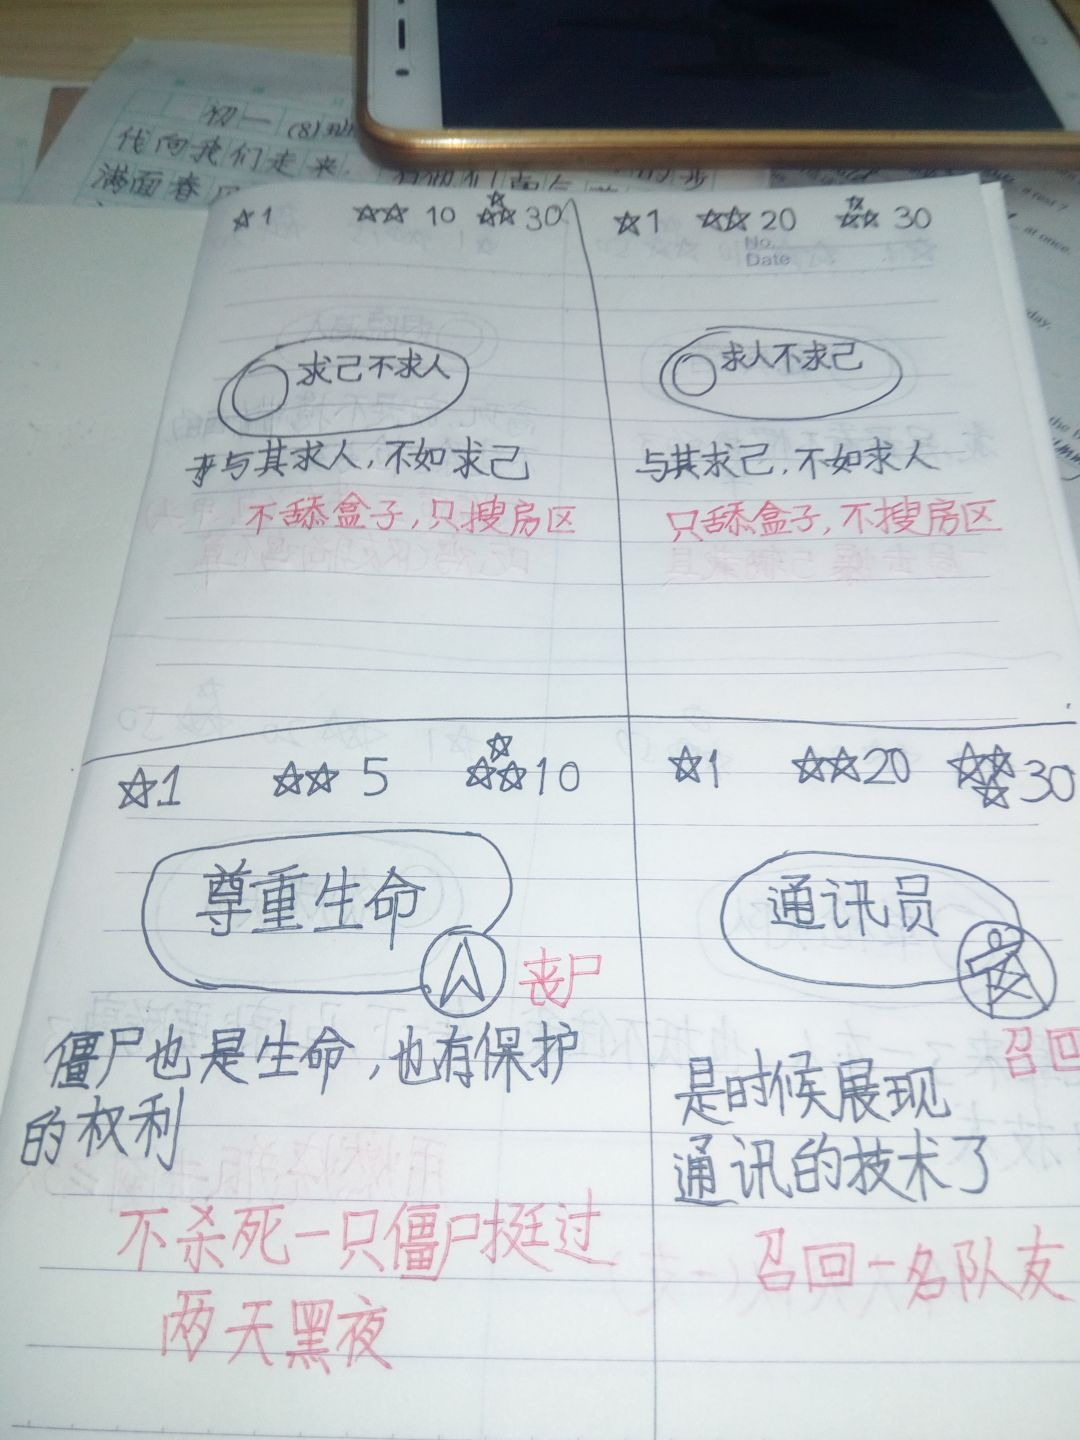 初一 (8)班
代向我们走来.
满面春
☆1 ☆☆ 10 ☆☆☆ 30
求己不求人
与其求人,不如求己
不舔盒子,只搜房区
☆1 ☆☆ 20 ☆☆☆ 30
No.
Date
求人不求己
与其求己,不如求人
只舔盒子,不搜房区
☆1 ☆☆ 5 ☆☆☆10
尊重生命
丧尸
僵尸也是生命,也有保护
的权利
不杀死一只僵尸挺过
两天黑夜
☆1 ☆☆20 ☆☆☆30
通讯员
召回
是时候展现
通讯的技术了
召回一名队友
at once.
day.